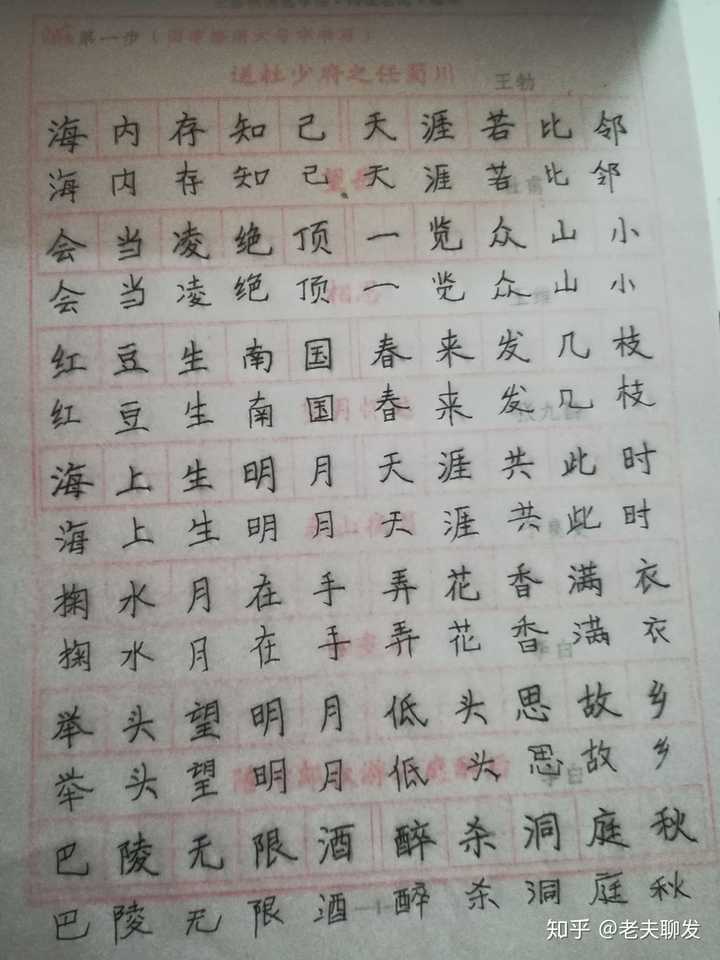 第一步
送杜少府之任蜀川 王勃
海内存知己天涯若比邻
海内存知己天涯若比邻
会当凌绝顶一览众山小
会当凌绝顶一览众山小
红豆生南国春来发几枝
红豆生南国春来发几枝
海上生明月天涯共此时
海上生明月天涯共此时
掬水月在手弄花香满衣
掬水月在手弄花香满衣
李白
举头望明月低头思故乡
举头望明月低头思故乡
李白
巴陵无限酒醉杀洞庭秋
巴陵无限酒醉杀洞庭秋
知乎 @老夫聊发